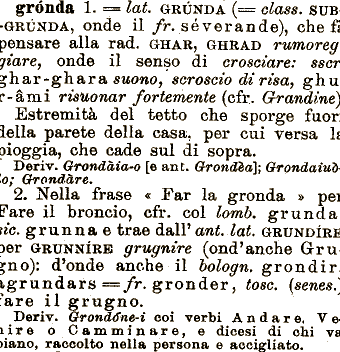 grónda 1. = lat. GRÚNDA (= class. SUB-
-GRÚNDA, onde il fr. séverande), che fa
pensare alla rad. GHAR, GHRAD rumoreg-
giare, onde il senso di crosciare: sscr.
ghar-ghara suono, scroscio di risa, ghu-
r-âmi risuonar fortemente (cfr. Grandine).
Estremità del tetto che sporge fuori
della parete della casa, per cui versa la
pioggia, che cade sul di sopra.
Deriv. Grondàia-o [e ant. Grondèa]; Grondaiuò-
lo; Grondàre.
2. Nella frase « Far la gronda » per
Fare il broncio, cfr. col lomb. grunda,
sic. grunna e trae dall' ant. lat. GRUNDÍRE
per GRUNNÍRE grugnire (ond'anche Gru-
gno): d'onde anche il bologn. grondir,
agrundars = fr. gronder, tosc. (senes.)
fare il grugno.
Deriv. Grondóne-i coi verbi Andare, Ve-
nire o Camminare, e dicesi di chi va
piano, raccolto nella persona e accigliato.